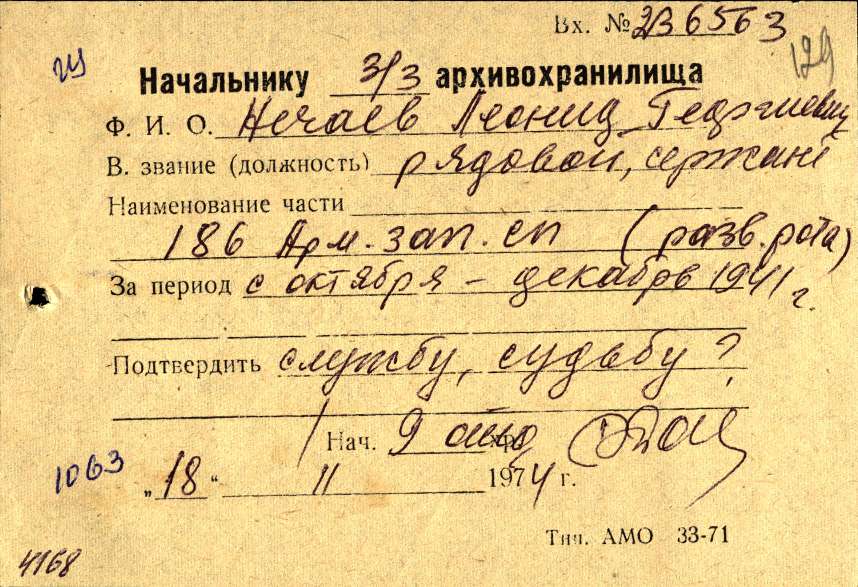 Вх. № 2В6563
129
Начальнику 3/3 архивохранилища
Ф. И. О. Нечаев Леонид Георгиевич
В. звание (должность) рядовой, сержант
Наименование части
186 Арм. зап. сп (разв. рота)
За период с октября - декабрь 1941 г.
Подтвердить службу, судьбу?
Нач. 9
1063
„18“ 11 1974 г.
Тип. АМО 33-71
4168